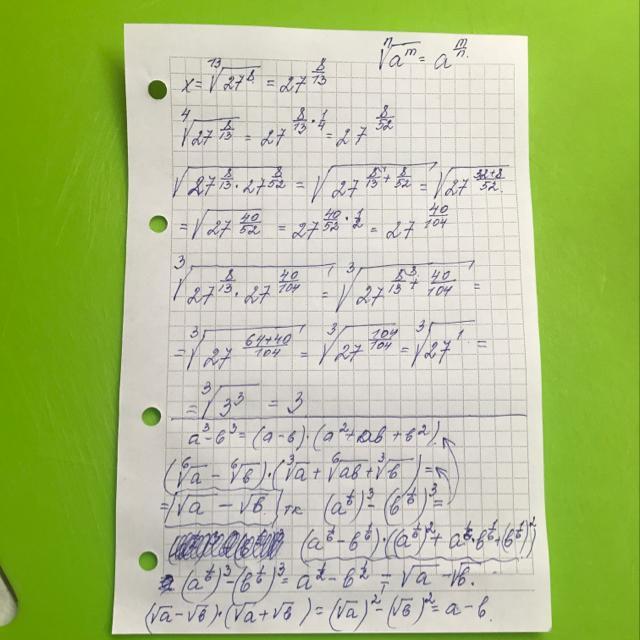 ⁿ√(a^m) = a^(m/n)
x = ¹³√(27⁸) = 27^(8/13)
⁴√(27^(8/13)) = 27^(8/13 · 1/4) = 27^(8/52)
√(27^(8/13) · 27^(8/52)) = √(27^(8/13 + 8/52)) = √(27^((32+8)/52))
= √(27^(40/52)) = 27^(40/52 · 1/2) = 27^(40/104)
³√(27^(8/13) · 27^(40/104)) = ³√(27^(8/13 + 40/104)) =
= ³√(27^((64+40)/104)) = ³√(27^(104/104)) = ³√(27¹) =
= ³√(3³) = 3
a³ - b³ = (a-b)·(a² + ab + b²)
(⁶√a - ⁶√b)·(³√a + ⁶√ab + ³√b) =
= √a - √b тк (a^(1/6))³ - (b^(1/6))³ =
(a^(1/6) - b^(1/6))·((a^(1/6))² + a^(1/6)·b^(1/6) + (b^(1/6))²)
(a^(1/6))³ - (b^(1/6))³ = a^(1/2) - b^(1/2) = √a - √b.
(√a - √b)·(√a + √b) = (√a)² - (√b)² = a - b.